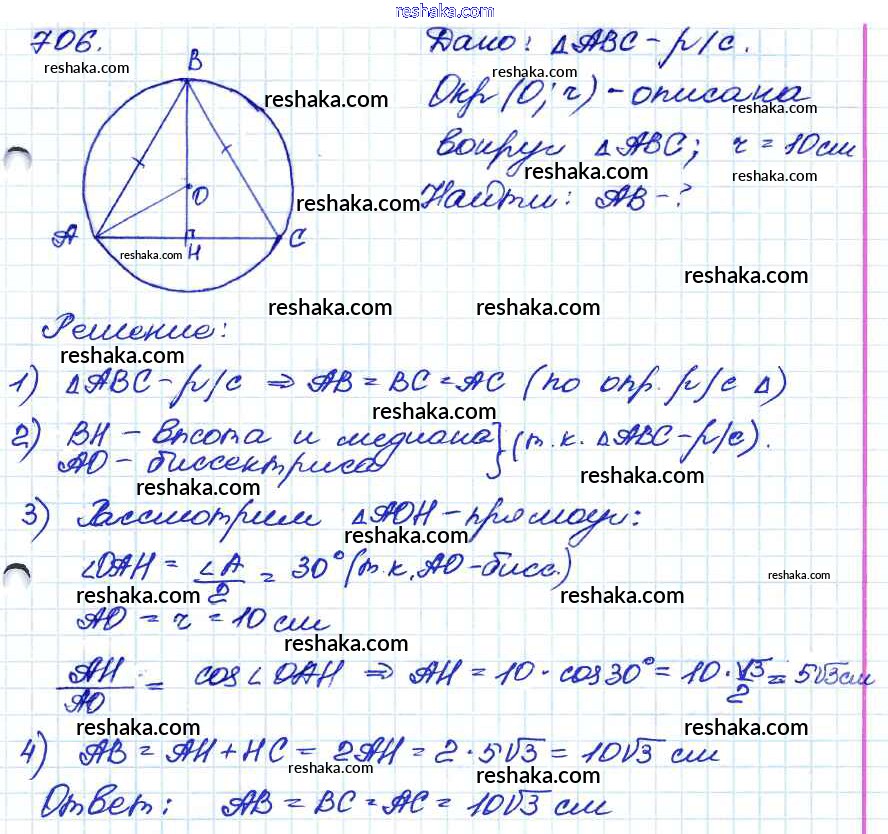 reshaka.com
706.
reshaka.com
B
O
A
H
C
reshaka.com
reshaka.com
reshaka.com
Дано: △ABC - р/с.
reshaka.com
Окр (O; r) - описана
reshaka.com
вокруг △ABC; r = 10 см
reshaka.com
reshaka.com
Найти: AB - ?
reshaka.com
reshaka.com reshaka.com
Решение:
reshaka.com
1) △ABC - р/с ⇒ AB = BC = AC (по опр. р/с △)
reshaka.com
2) BH - высота и медиана } (т.к. △ABC - р/с).
AO - биссектриса
reshaka.com
reshaka.com
3) Рассмотрим △AOH - прямоуг:
reshaka.com
∠OAH = ∠A/2 = 30° (т.к. AO - бисс.)
reshaka.com
reshaka.com
AO = r = 10 см
reshaka.com
AH/AO = cos∠OAH ⇒ AH = 10 · cos30° = 10 · √3/2 = 5√3 см
reshaka.com reshaka.com
4) AB = AH + HC = 2AH = 2 · 5√3 = 10√3 см
reshaka.com
reshaka.com
Ответ: AB = BC = AC = 10√3 см